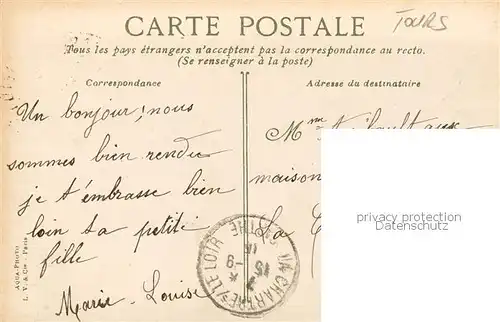 CARTE POSTALE
TOURS
Tous les pays étrangers n'acceptent pas la correspondance au recto.
(Se renseigner à la poste)
Correspondance
Adresse du destinataire
Un bonjour; nous
sommes bien rendu
je t'embrasse bien
loin ta petite
fille
Marie-Louise
Mme
maison
La
LA CHARTRE S/LE LOIR
SARTHE
AQUA-PHOTO
L. V. & Cie - Paris
privacy protection
Datenschutz